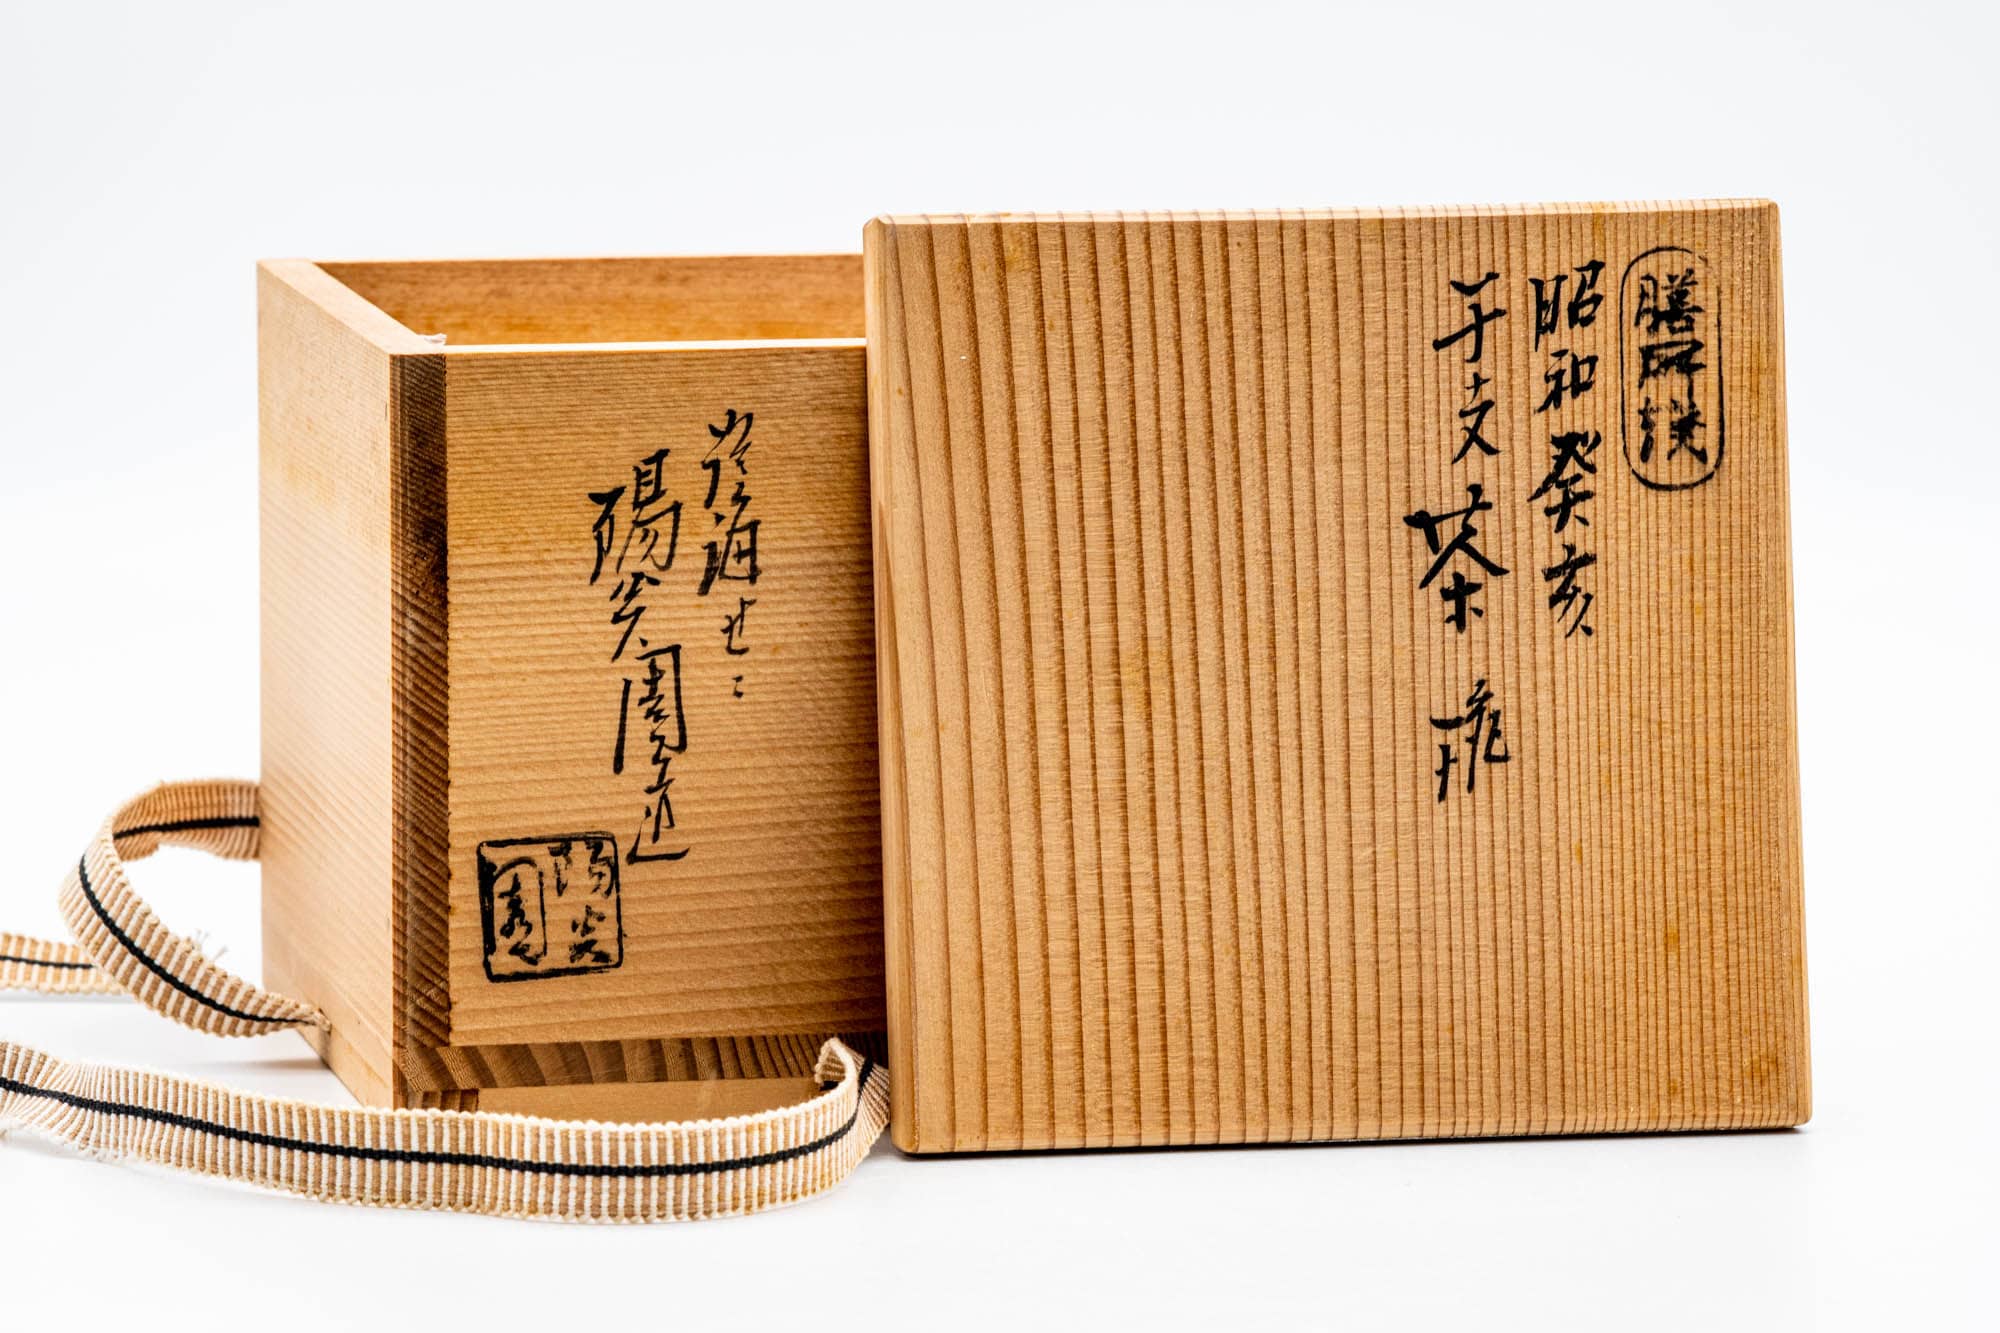 膳所焼
昭和癸亥
干支 茶碗
陽炎園造
陽炎
園